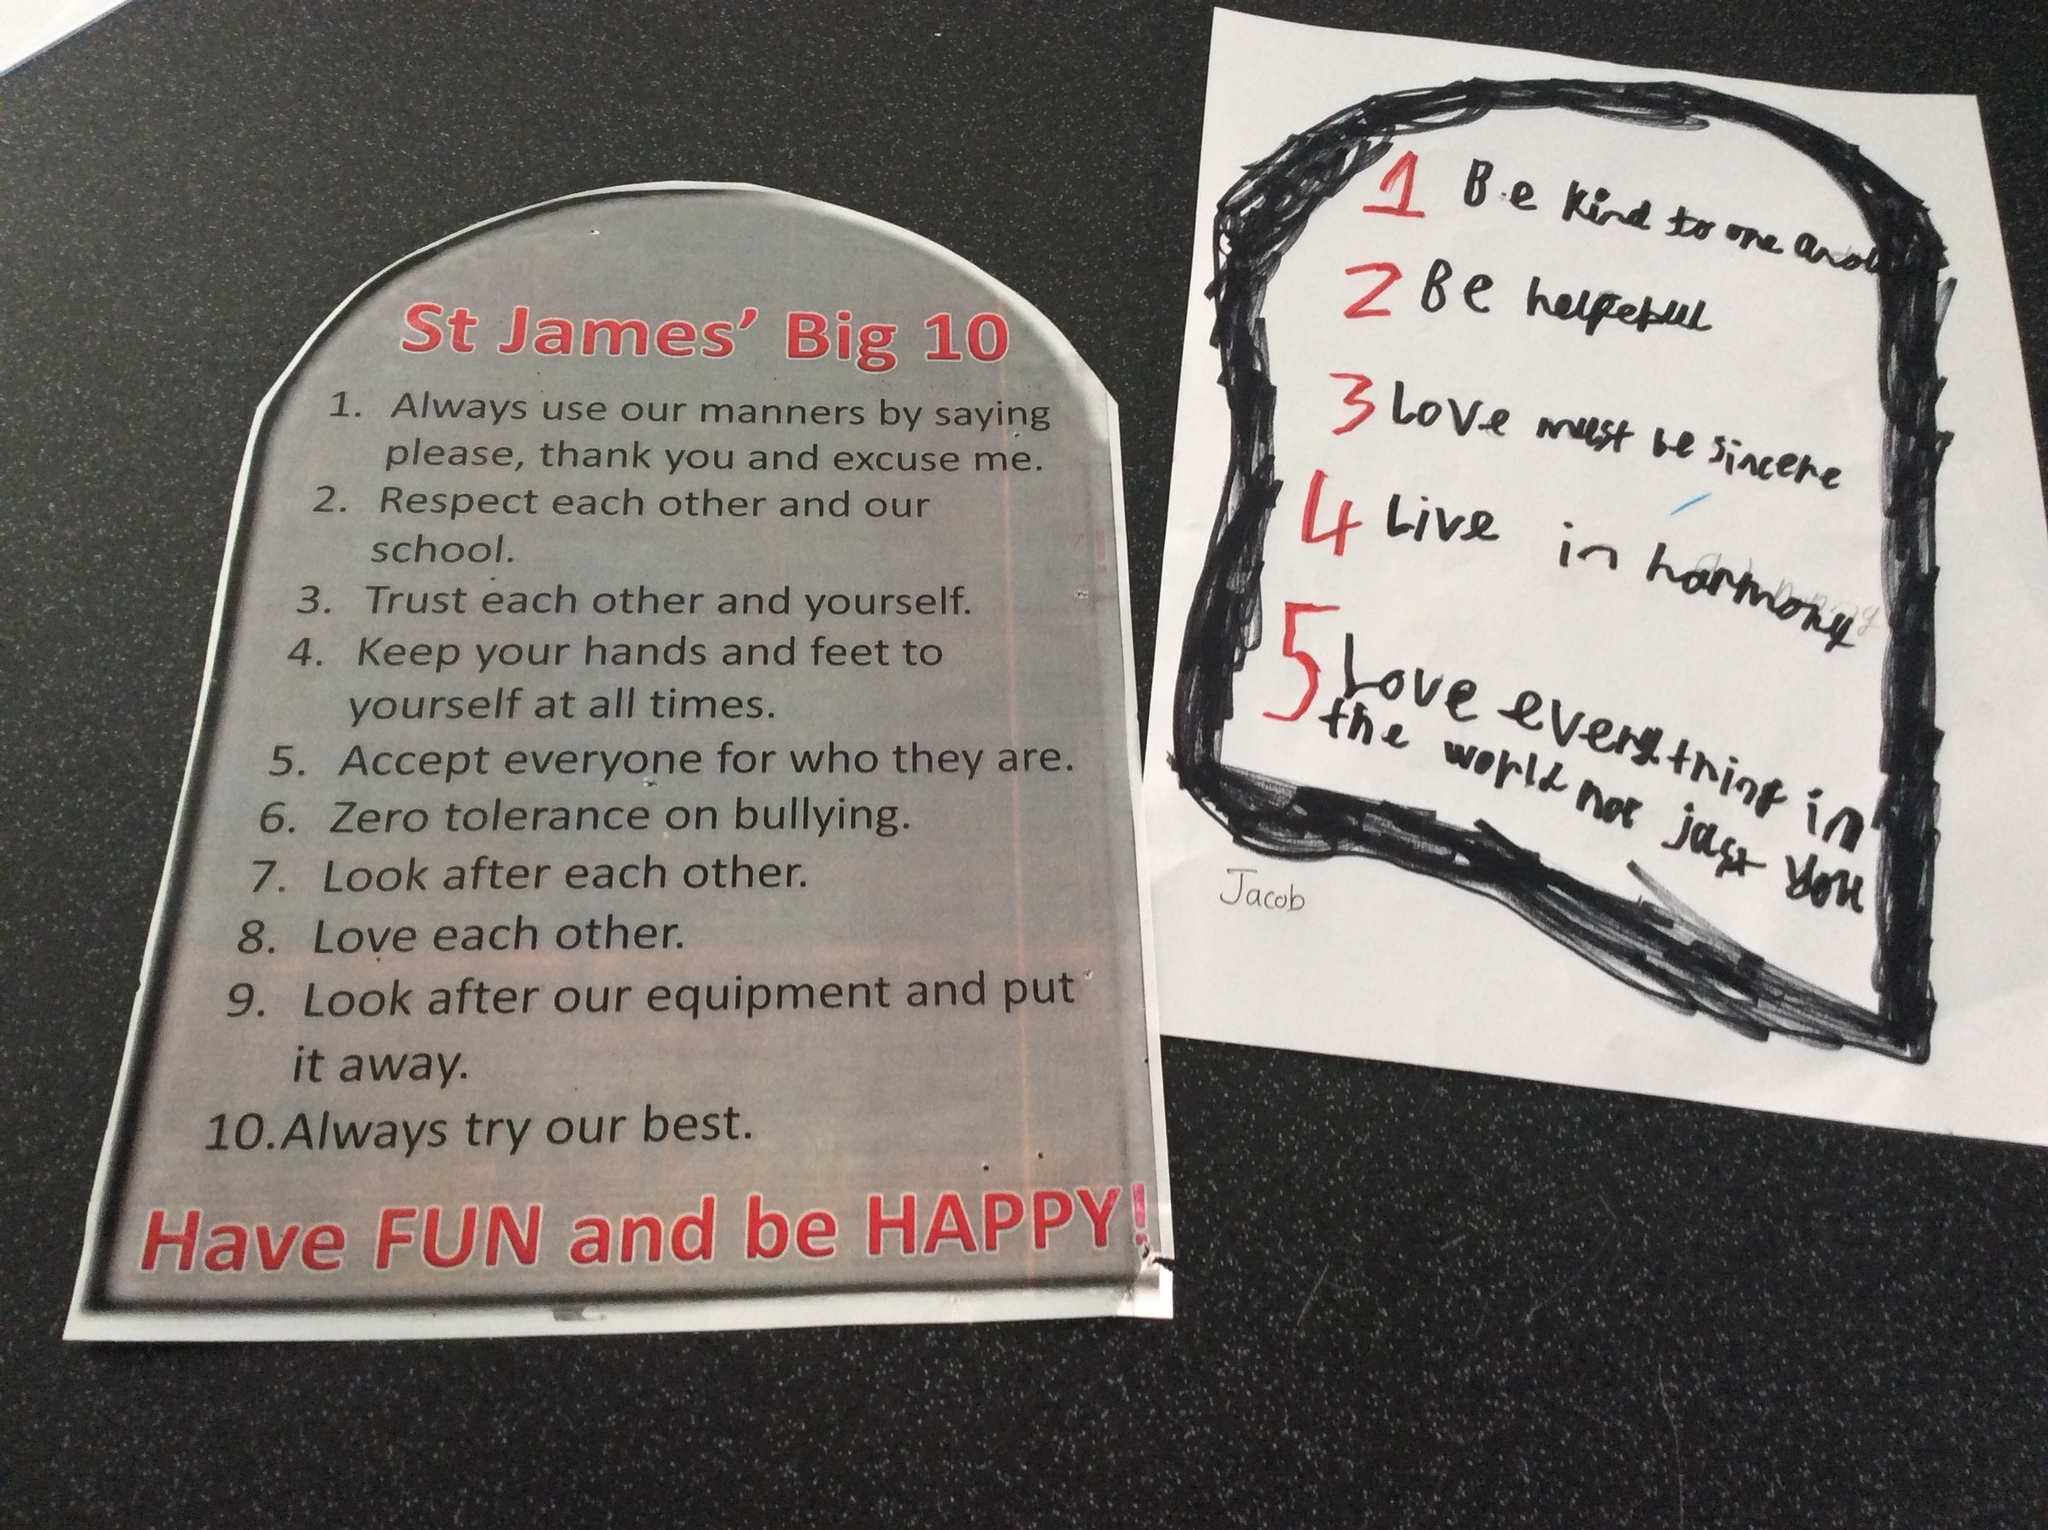 St James’ Big 10
1. Always use our manners by saying
please, thank you and excuse me.
2. Respect each other and our
school.
3. Trust each other and yourself.
4. Keep your hands and feet to
yourself at all times.
5. Accept everyone for who they are.
6. Zero tolerance on bullying.
7. Look after each other.
8. Love each other.
9. Look after our equipment and put
it away.
10. Always try our best.
Have FUN and be HAPPY!
1 Be kind to one
2 Be helpeful
3 Love must be sincere
4 Live in harmony
5 Love everything in
the world not jast you
Jacob